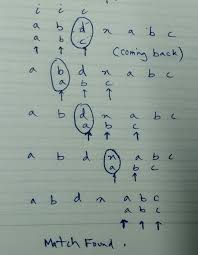 i i i
a b d x a b c
a b c
(coming back)
a b d x a b c
a b c
a b d x a b c
a b c
a b d x a b c
a b c
a b d x a b c
a b c
Match Found.